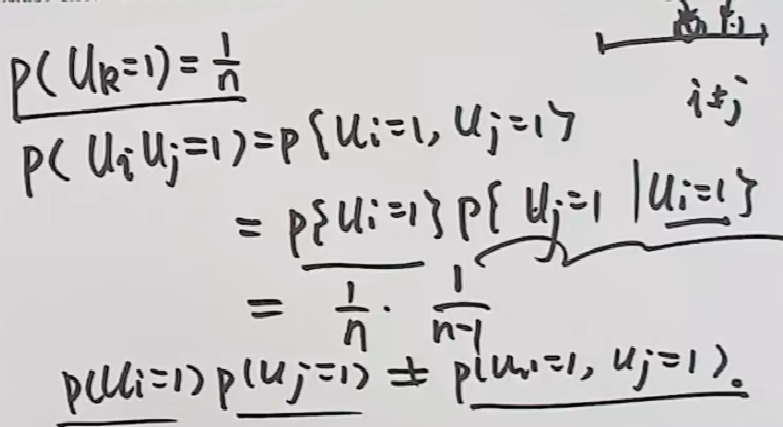 P(U_k=1)=1/n
i≠j
P(U_i U_j=1)=P{U_i=1, U_j=1}
=P{U_i=1}P{U_j=1 | U_i=1}
= 1/n · 1/(n-1)
P(U_i=1)P(U_j=1) ≠ P(U_i=1, U_j=1).